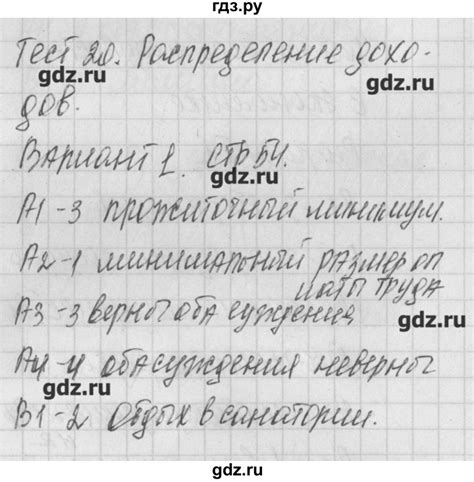 гдз.ру
Тест 20. Распределение дохо-
gdz.ru
дов.
gdz.ru
Вариант 1. стр 54.
gdz.ru
А1-3 прожиточный минимум.
gdz.ru
А2-1 минимальный размер оп
латы труда
gdz.ru
А3-3 верны оба суждения
gdz.ru
А4-4 оба суждения неверны
gdz.ru
В1-2 Отдых в санатории.
gdz.ru